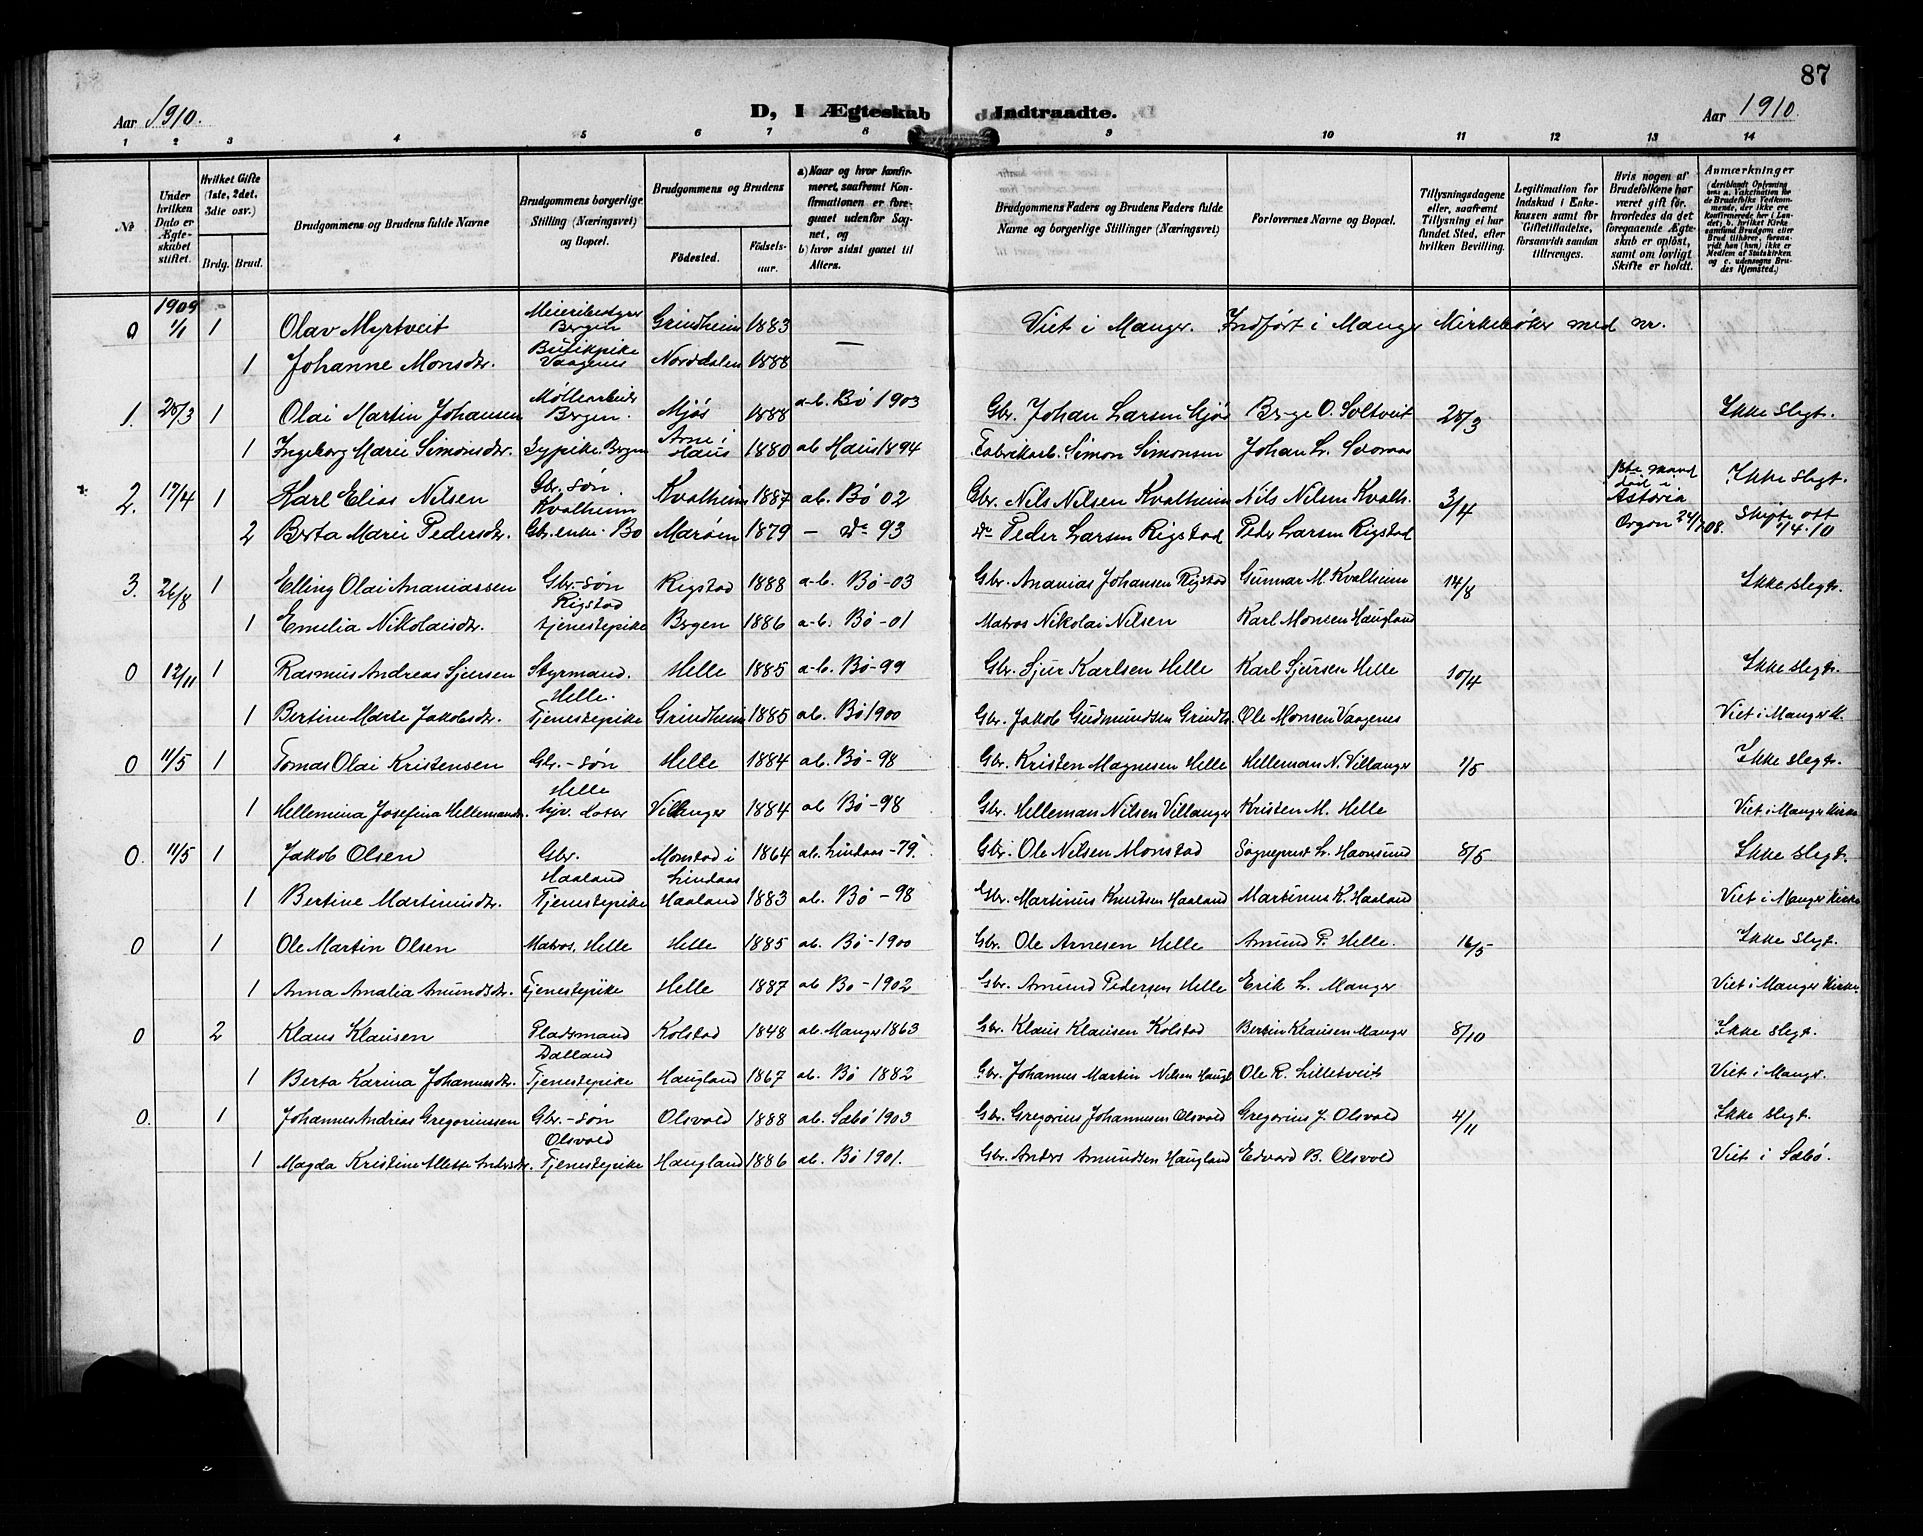 87
Aar 1910.
D, I Ægteskab Indtraadte.
Aar 1910.
1 2 3 4 5 6 7 8 9 10 11 12 13 14
No
Under hvilken Dato er Ægteskabet stiftet.
Hvilket Gifte (1ste, 2det, 3die osv.)
Brdg. Brud.
Brudgommens og Brudens fulde Navne
Brudgommens borgerlige Stilling (Næringsvei) og Bopæl.
Brudgommens og Brudens
Födested.
Födselsaar.
a) Naar og hvor konfirmeret, saafremt Konfirmationen er foregaaet udenfor Sognet, og
b) hvor sidst gaaet til Alters.
Brudgommens Faders og Brudens Faders fulde Navne og borgerlige Stillinger (Næringsvei)
Forlovernes Navne og Bopæl.
Tillysningsdagene eller, saafremt Tillysning ei har fundet Sted, efter hvilken Bevilling.
Legitimation for Indskud i Enkekassen samt for Giftetilladelse, forsaavidt saadan tiltrænges.
Hvis nogen af Brudefolkene har været gift för, hvorledes da det foregaaende Ægteskab er oplöst, samt om lovligt Skifte er holdt.
Anmærkninger
1909
0 1/1 1 Olav Myrtveit Meieribestyrer Bergen Grindheim 1883 — Viet i Manger. Indført i Manger Kirkebøker med nr.
1 Johanne Monsdtr. Butikpike Vaagenes Norddalen 1888
1. 28/3 1 Olai Martin Johansen Møllearbeider Bergen. Mjøs 1888 a-b. Bø 1903 Gbr. Johan Larsen Mjøs Berge O. Soltveit 28/3 Ikke slegt.
1 Ingeborg Marie Simonsdtr. Sypike. Bergen Arne i Haus 1880 ab Haus 1894 Fabrikarb. Simon Simonsen Johan L.
2. 17/4 1 Karl Elias Nilsen Gbr. søn. Kvalheim Kvalheim 1887 ab. Bø 02 Gbr. Nils Nilsen Kvalheim Nils Nilsen Kvalh. 3/4 mand død i Astoria Ikke slegt.
2 Berta Marie Pedersdtr. Gbr. enke. Bo Marøen 1879 — do 93 do Peder Larsen Rigstad Peder Larsen Rigstad Orgon 24/7 08. Skifte att 1/4-10
3. 26/8 1 Elling Olai Ananiassen Gbr-søn Rigstad Rigstad 1888 a-b. Bø-03 Gbr. Ananias Johansen Rigstad Gunnar M. Kvalheim 14/8 Ikke slegt.
1 Emelia Nikolaisdtr. tjenestepike Bergen 1886 a-b. Bø-01 Matros Nikolai Nilsen Karl Monsen Haugland
0 12/11 1 Rasmus Andreas Sjursen Styrmand. Helle. Helle 1885 a-b. Bø-99 Gbr. Sjur Karlsen Helle Karl Sjursen Helle 10/4 Ikke slegt.
1 Bertine Marte Jakobsdtr. Tjenestepike Grindheim 1885 ab. Bø 1900 Gbr. Jakob Gudmundsen Grindh. Ole Monsen Vaagenes Viet i Manger K.
0 11/5 1 Tomas Olai Kristensen Gbr.-søn Helle Helle 1884 ab. Bø-98 Gbr. Kristen Magnesen Helle Helleman N. Villanger 1/5 Ikke slegt.
1 Hellemina Josefina Hellemandtr. Villanger 1884 ab Bø-98 Gbr. Helleman Nilsen Villanger Kristen M. Helle Viet i Manger Kirke
0. 11/5 1 Jakob Olsen Gbr. Haaland Monstad i Lindaas 1864 ab. Lindaas-79. Gbr. Ole Nilsen Monstad Sogneprest L. 8/5 Ikke slegt.
1 Bertine Martinusdtr. Tjenestepike Haaland 1883 ab. Bø-98 Gbr. Martinus Knutsen Haaland Martinus K. Haaland Viet i Manger Kirke
0 1 Ole Martin Olsen Matros. Helle Helle 1885 ab. Bø-1900 Gbr. Ole Arnesen Helle Amund P. Helle. 16/5 Ikke slegt.
1 Anna Amalia Amundsdtr. Tjenestepike Helle 1887 ab Bø-1902 Gbr. Amund Pedersen Helle Erik L. Manger Viet i Manger Kirke
0 2 Klaus Klausen Pladsmand Dalland Kolstad 1848 ab. Manger 1863 Gbr. Klaus Klausen Kolstad Bertin Klausen Manger 8/10 Ikke slegt.
1 Berta Karina Johannesdtr. Tjenestepike Haugland 1867 ab. Bø 1882 Gbr. Johannes Martin Nilsen Haugl Ole R. Lilletveit Viet i Manger.
0. 1 Johannes Andreas Gregoriussen Gbr-søn Olsvold Olsvold 1888 ab. Sæbø 1903 Gbr. Gregorius Johannesen Olsvold Gregorius J. Olsvold 4/11 Ikke slegt.
1 Magda Kristine Alette Andersdtr. Tjenestepike Haugland 1886 ab. Bø 1901. Gbr. Anders Amundsen Haugland Edvard B. Olsvold Viet i Sæbø.